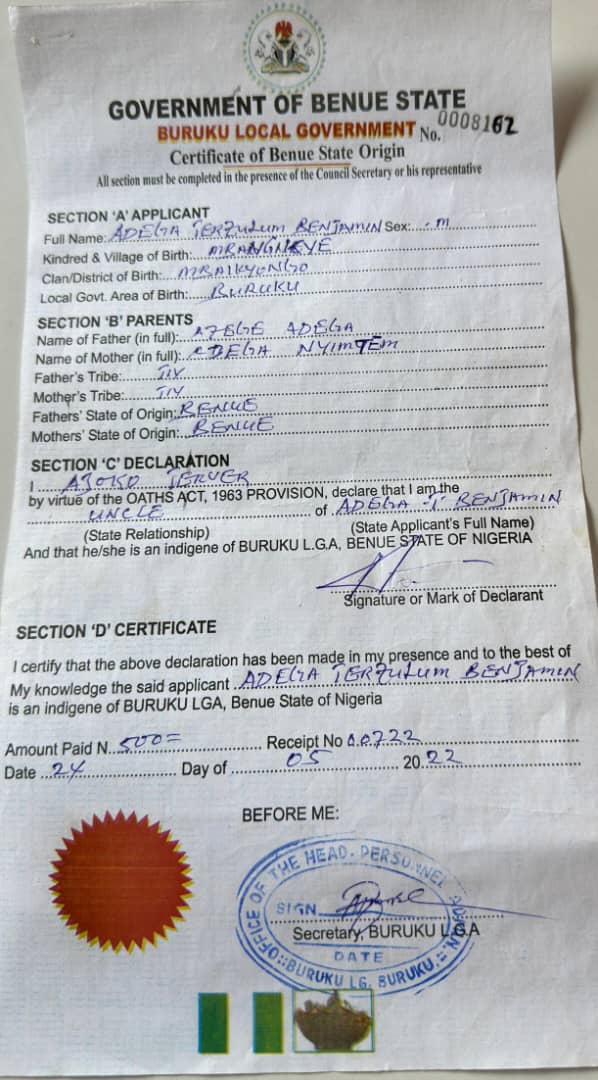 GOVERNMENT OF BENUE STATE
BURUKU LOCAL GOVERNMENT No. 0008162
Certificate of Benue State Origin
All section must be completed in the presence of the Council Secretary or his representative
SECTION 'A' APPLICANT
Full Name: ADEGA TERZULUM BENJAMIN Sex: M
Kindred & Village of Birth: MBANGNEYE
Clan/District of Birth: MBAIKYONGO
Local Govt. Area of Birth: BURUKU
SECTION 'B' PARENTS
Name of Father (in full): AZEGE ADEGA
Name of Mother (in full): ADEGA NYIMTEM
Father's Tribe: TIV
Mother's Tribe: TIV
Fathers' State of Origin: BENUE
Mothers' State of Origin: BENUE
SECTION 'C' DECLARATION
I AJOKO TERVER
by virtue of the OATHS ACT, 1963 PROVISION, declare that I am the
UNCLE of ADEGA T BENJAMIN
(State Relationship) (State Applicant's Full Name)
And that he/she is an indigene of BURUKU L.G.A, BENUE STATE OF NIGERIA
Signature or Mark of Declarant
SECTION 'D' CERTIFICATE
I certify that the above declaration has been made in my presence and to the best of
My knowledge the said applicant ADEGA TERZULUM BENJAMIN
is an indigene of BURUKU LGA, Benue State of Nigeria
Amount Paid N. 500= Receipt No 00722
Date 24 Day of 05 20 22
BEFORE ME:
OFFICE OF THE HEAD. PERSONNEL ADMN.
SIGN
Secretary, BURUKU L.G.A
DATE
BURUKU LG. BURUKU.